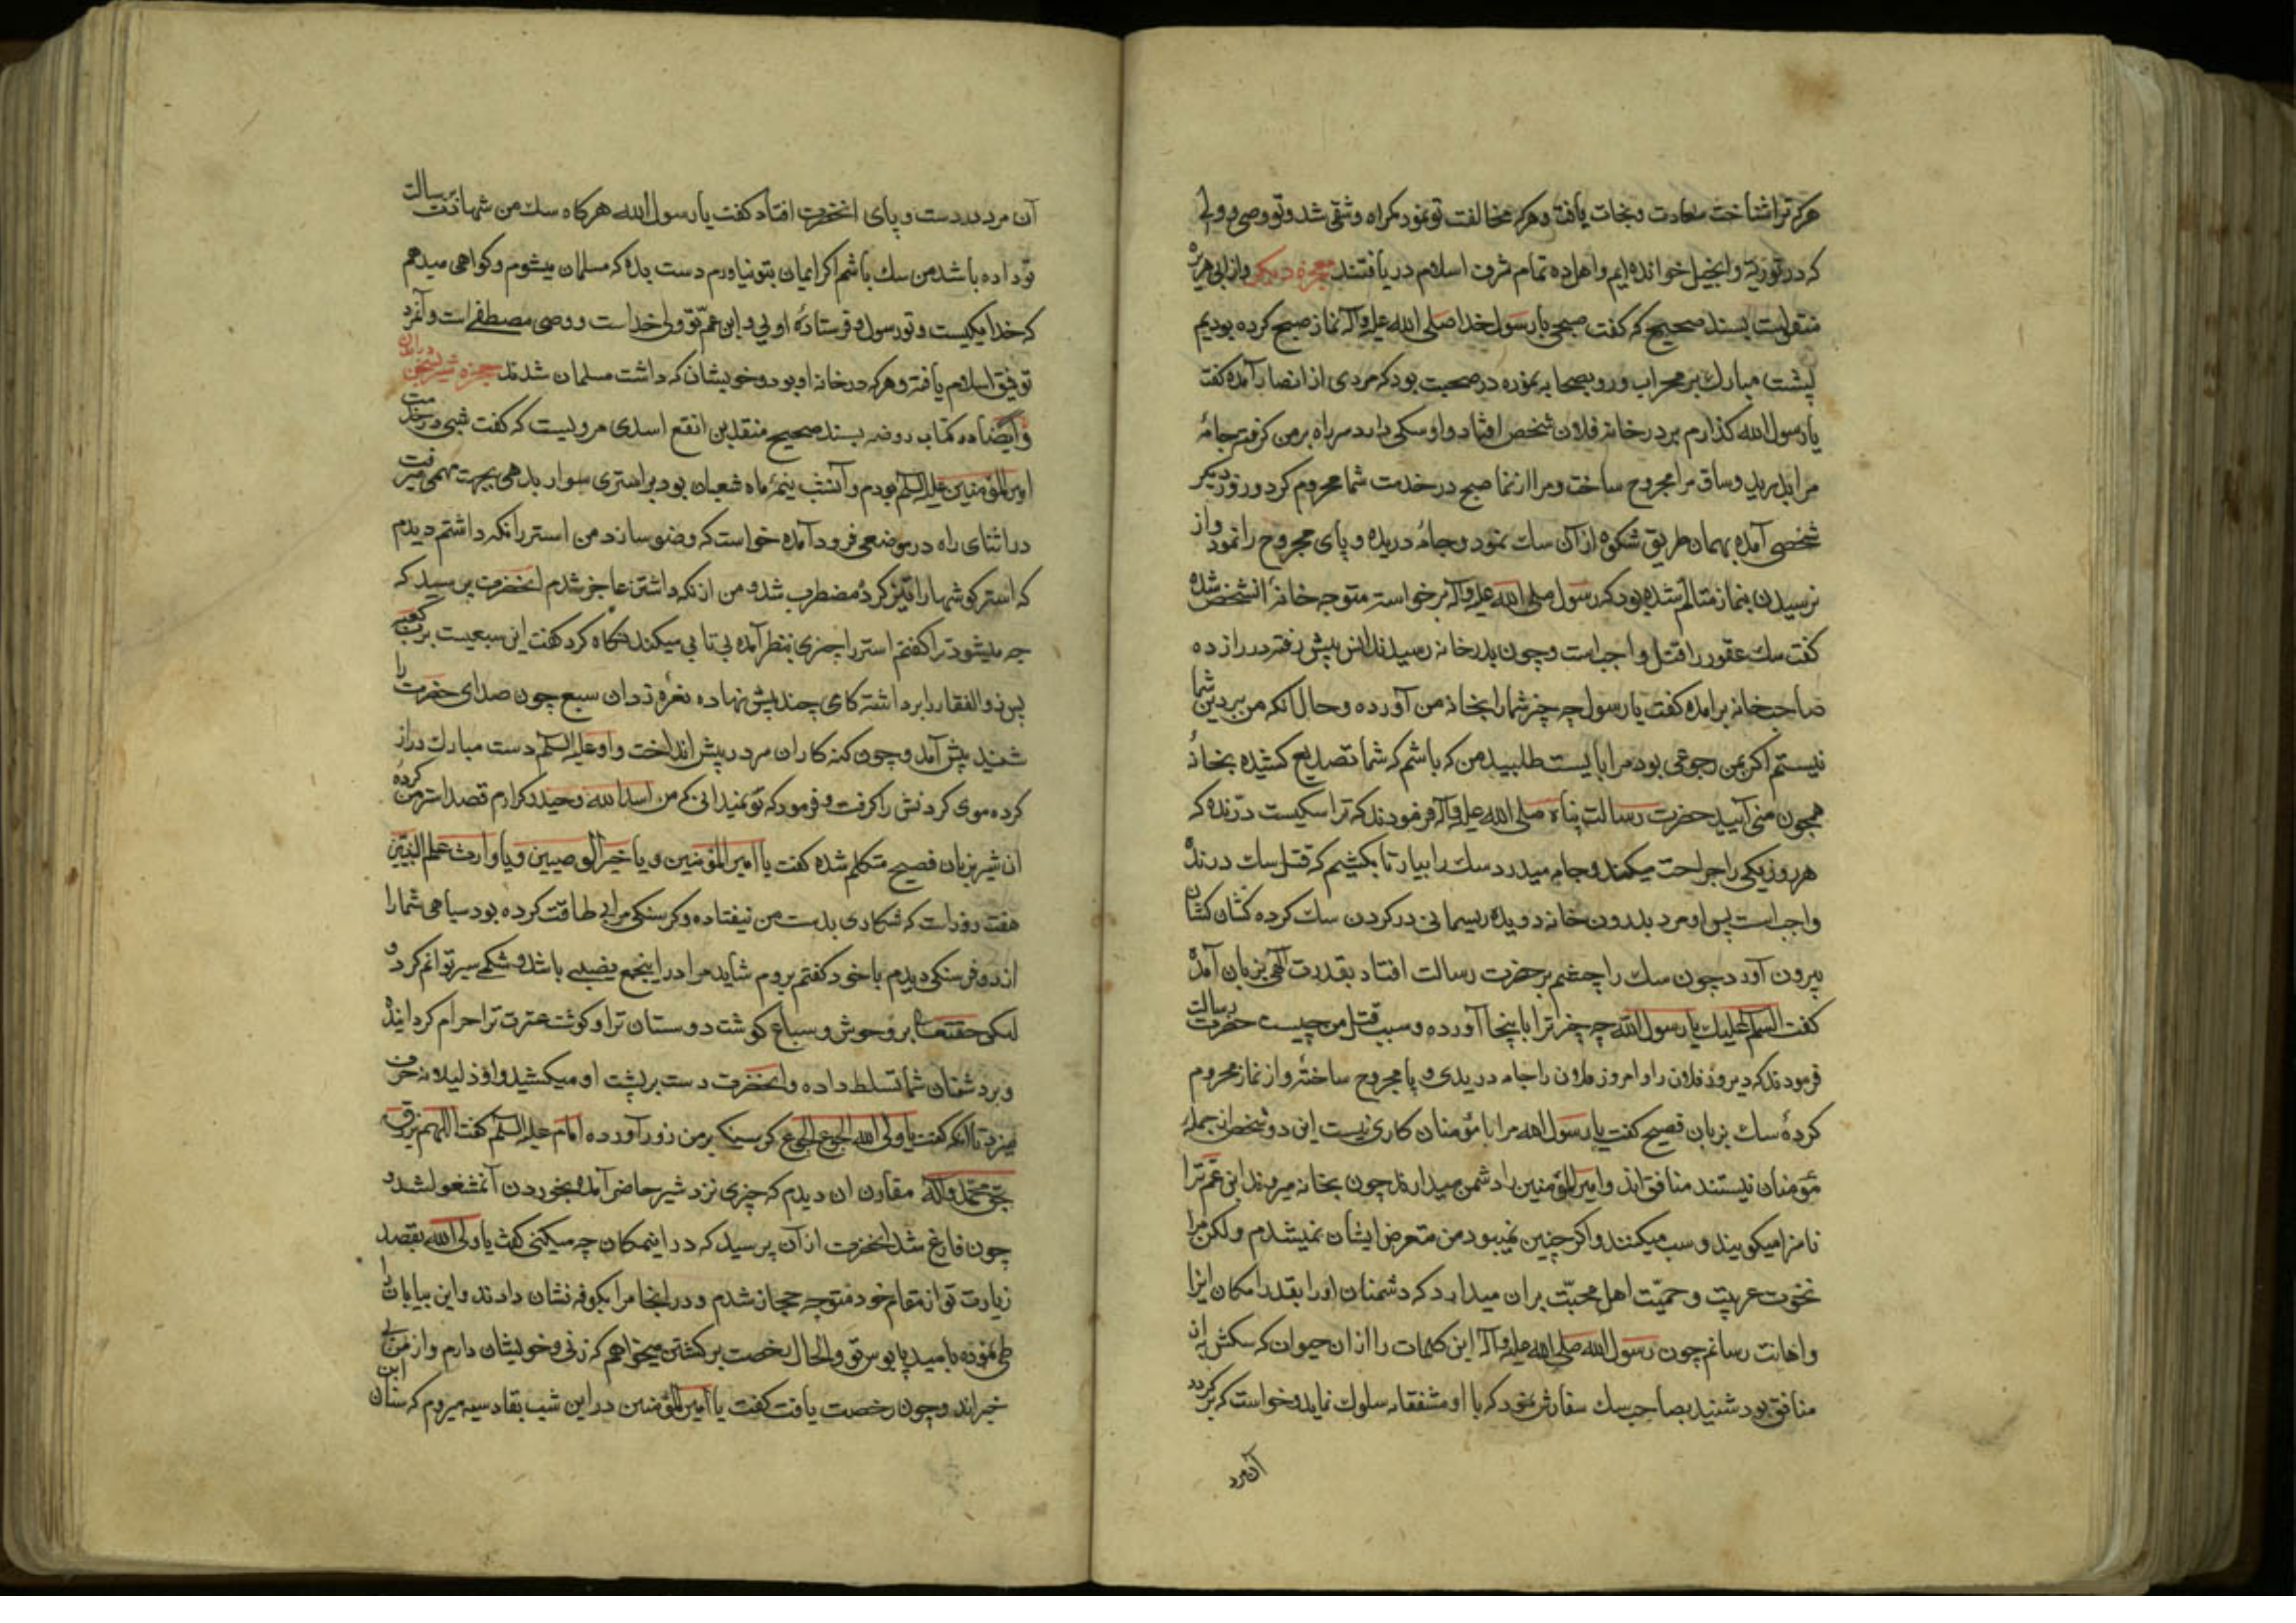 هرکه ترا شناخت سعادت و نجات یافت و هرکه مخالفت تو نمود گمراه و شقی شد و تو وصی و ولی
که در توریة و انجیل خوانده‌ایم و اهل ده تمام شرف اسلام دریافتند معجزه دیگر و از ابی هریره
منقولست بسند صحیح که گفت صبحی با رسول خدا صلی الله علیه وآله نماز صبح کرده بودیم
پشت مبارک بر محراب و رو بصحابه نموده در صحبت بود که مردی از انصار آمده گفت
یا رسول الله گذارم بر در خانه فلان شخص افتاد و او سکی دارد سر راه بر من گرفته جامهٔ
مرا بدرید و ساق مرا مجروح ساخت و مرا از نماز صبح در خدمت شما محروم کرد و روز دیگر
شخصی آمده بهمان طریق شکوه از آن سک نمود و جامهٔ دریده و پای مجروح را نمود و از
نرسیدن بنماز متالم شده بود که رسول صلی الله علیه وآله برخواسته متوجه خانهٔ آنشخص شده
گفت سک عقور را قتل واجبست و چون بدر خانه رسیدند انس پیش رفته در را زده
صاحب خانه برآمده گفت یا رسول چه چیز شما را بخانه من آورده و حال آنکه من بر دین شما
نیستم اگر بمن رجوعی بود مرا بایست طلبید من که باشم که شما تصدیع کشیده بخانهٔ
همچون منی آیید حضرت رسالت پناه صلی الله علیه وآله فرمودند که ترا سکیست درنده که
هر روز یکی را جراحت میکند و جامه میدرد سک را بیار تا بکشیم که قتل سک درنده
واجبست پس او مرد بدرون خانه دویده ریسمانی در گردن سک کرده کشان کشان
بیرون آورد چون سک را چشم بر حضرت رسالت افتاد بقدرت الهی بزبان آمده
گفت السلام علیک یا رسول الله چه چیز ترا باینجا آورده و سبب قتل من چیست حضرت رسالت
فرمودند که دیروز فلان را و امروز فلان را جامه دریدی و پا مجروح ساختهٔ و از نماز محروم
کردهٔ سک بزبان فصیح گفت یا رسول الله مرا با مؤمنان کاری نیست این دو شخص از جمله
مؤمنان نیستند منافق‌اند و امیر المؤمنین را دشمن میدارند چون بخانه میروند ابن عم ترا
ناسزا میگویند و سب میکنند و اگر چنین نمیبود من متعرض ایشان نمیشدم ولکن مرا
نخوت عربیت و حمیّت اهل محبّت بران میدارد که دشمنان او را بقدر امکان ایزا
و اهانت رسانم چون رسول الله صلی الله علیه وآله این کلمات را از ان حیوان که سکش به از
منافق بود شنید بصاحب سک سفارش نمود که با او مشفقانه سلوک نماید و خواست که برگردد
آن مرد
آن مرد در دست و پای انحضرت افتاد گفت یا رسول الله هرگاه سک من شهادت برسالت
تو داده باشد من سک باشم اگر ایمان بتو نیاورم دست بده که مسلمان میشوم و گواهی میدهم
که خدا یکیست و تو رسول و فرستادهٔ اویی و ابن عمّ تو ولی خداست و وصی مصطفی است و آنمرد
توفیق اسلام یافته و هرکه در خانه او بود و خویشان که داشت مسلمان شدند معجزه شیر
و ایضا در کتاب روضه بسند صحیح منقذ بن انقع اسدی مرویست که گفت شبی در خدمت
امیر المؤمنین علیه السلم بودم و آنشب نیمهٔ ماه شعبان بود بر استری سوار بدهی بجهت مهمی میرفت
در اثنای راه در موضعی فرود آمده خواست که وضو سازد من استر را نگه داشتم دیدم
که استر گوشها را تیز کرده مضطرب شد و من از نگه داشتن عاجز شدم انحضرت پرسید که
چه میشود ترا گفتم استر را چیزی بنظر آمده بی تابی میکند نگاه کرد گفت این سبعیست برب کعبه
پس ذوالفقار را برداشته کامی چند پیش نهاده نعره زد ان سبع چون صدای حضرت را
شنید پیش آمد و چون گنه کاران سر در پیش انداخت و او علیه السلم دست مبارک دراز
کرده موی گردنش را گرفت و فرمود که تو نمیدانی که من اسد الله و حیدر کرارم قصد استر من کردهٔ
ان شیر بزبان فصیح متکلم شده گفت یا امیر المؤمنین و یا خیر الوصیین و یا وارث علم النبیین
هفت روز است که شکاری بدست من نیفتاده و گرسنگی مرا بی طاقت کرده بود سیاهی شما را
از دو فرسنگی دیدم با خود گفتم بروم شاید مرا در اینجمع نصیبی باشد و شکمی سیر توانم کرد و
لیکن حقتعالی بر وحوش و سباع گوشت دوستان ترا و گوشت عترت ترا حرام گردانیده
و بر دشمنان شما تسلط داده و انحضرت دست بر پشت او میکشید و او ذلیلانه حرف
میزد تا انکه گفت یا ولی الله الجوع الجوع گرسنگی بر من زور آورده امام علیه السلم گفت اللهم ارزق
بحق محمد وآله مقارن ان دیدم که چیزی نزد شیر حاضر آمده بخوردن آن مشغول شد و
چون فارغ شد انحضرت از آن پرسید که در اینمکان چه میکنی گفت یا ولی الله بقصد
زیارت تو از مقام خود متوجه حجاز شدم و در انجا مرا بکوفه نشان دادند و این بیابان را
طی نموده بامید پابوس تو والحال رخصت برگشتن میخواهم که زنی و خویشان دارم و از من بی
خبراند و چون رخصت یافت گفت یا امیر المؤمنین در این شب بقادسیه میروم که سنان ابن